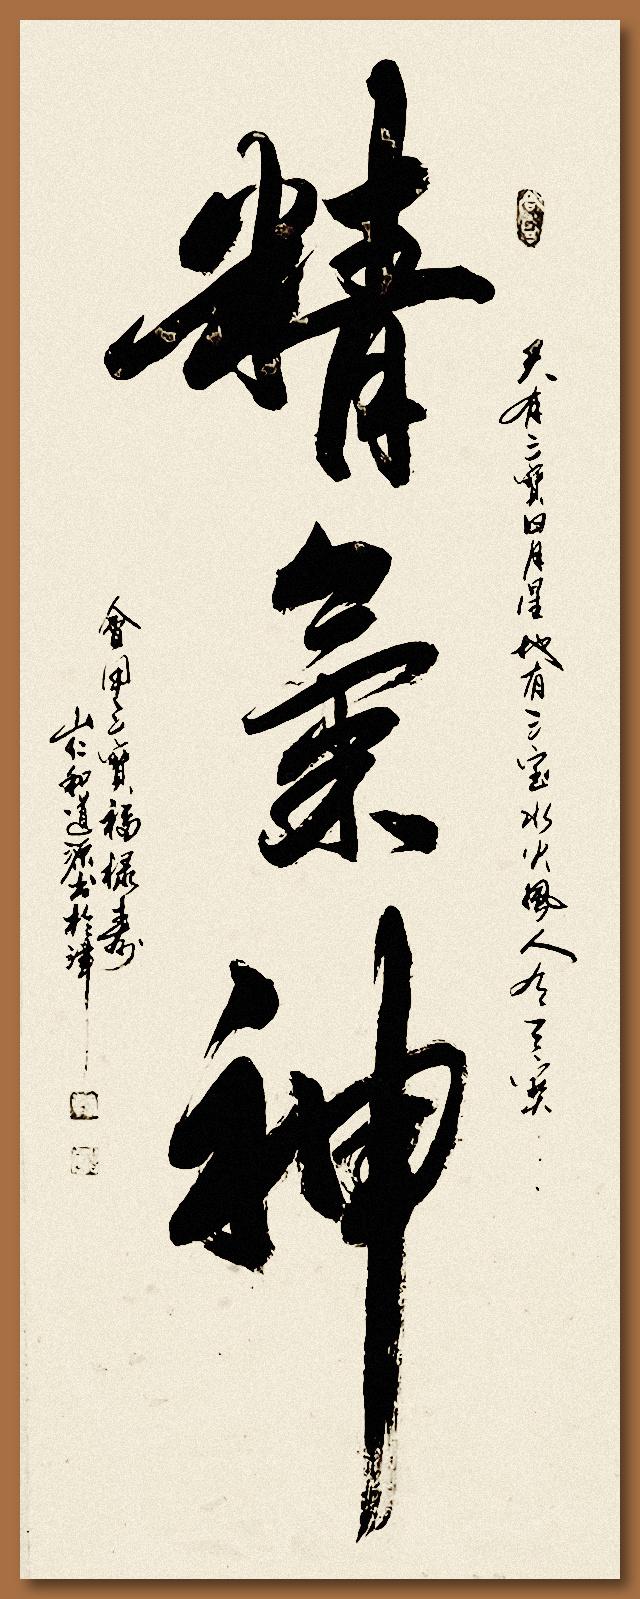 天有三寶日月星地有三宝水火風人有三寶
精氣神
會用三寶福祿壽
山仁和道源书於津